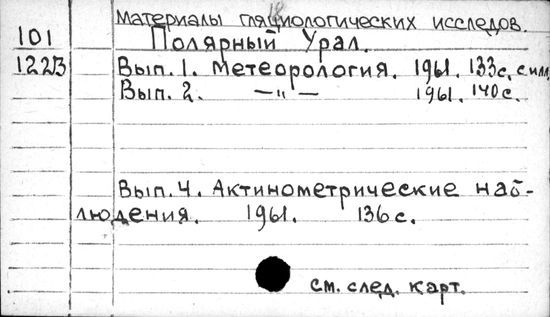 18
Материалы гляциологических исследов.
101 Полярный Урал.
1223 Вып. 1. Метеорология. 1961. 133с. с илл.
Вып. 2. —"— 1961. 140с.
Вып. 4. Актинометрические наб-
людения. 1961. 136с.
см. след. карт.